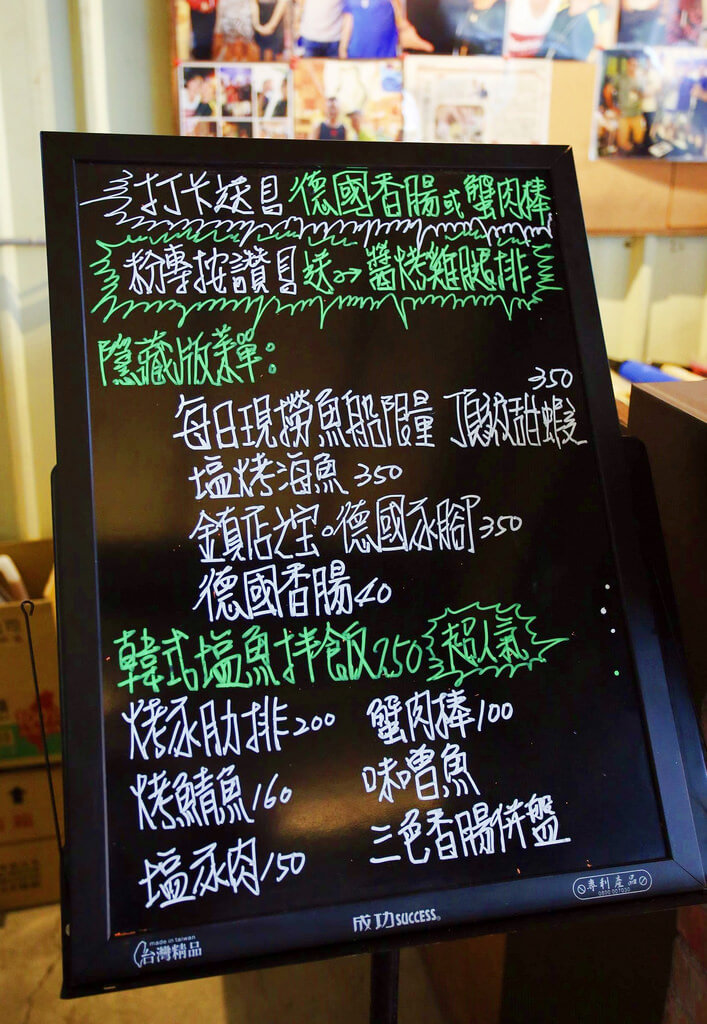 打卡送&德國香腸或蟹肉棒
粉專按讚&送→醬烤雞腿排
隱藏版菜單:
每日現撈魚船限量 頂級甜蝦 350
塩烤海魚 350
鎮店之宝。德國豕腳 350
德國香腸 40
韓式塩魚拌飯 250 超人氣
烤豕肋排 200 蟹肉棒 100
烤鯖魚 160 味噌魚
塩豕肉 150 三色香腸併盤
專利產品
成功 SUCCESS®
made in taiwan
台灣精品